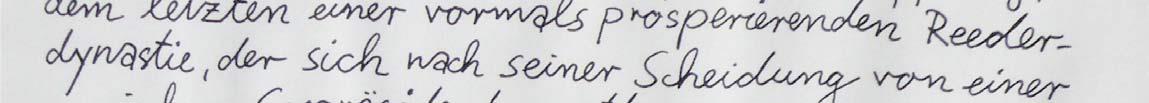 dem letzten einer vormals prosperierenden Reeder-
dynastie, der sich nach seiner Scheidung von einer